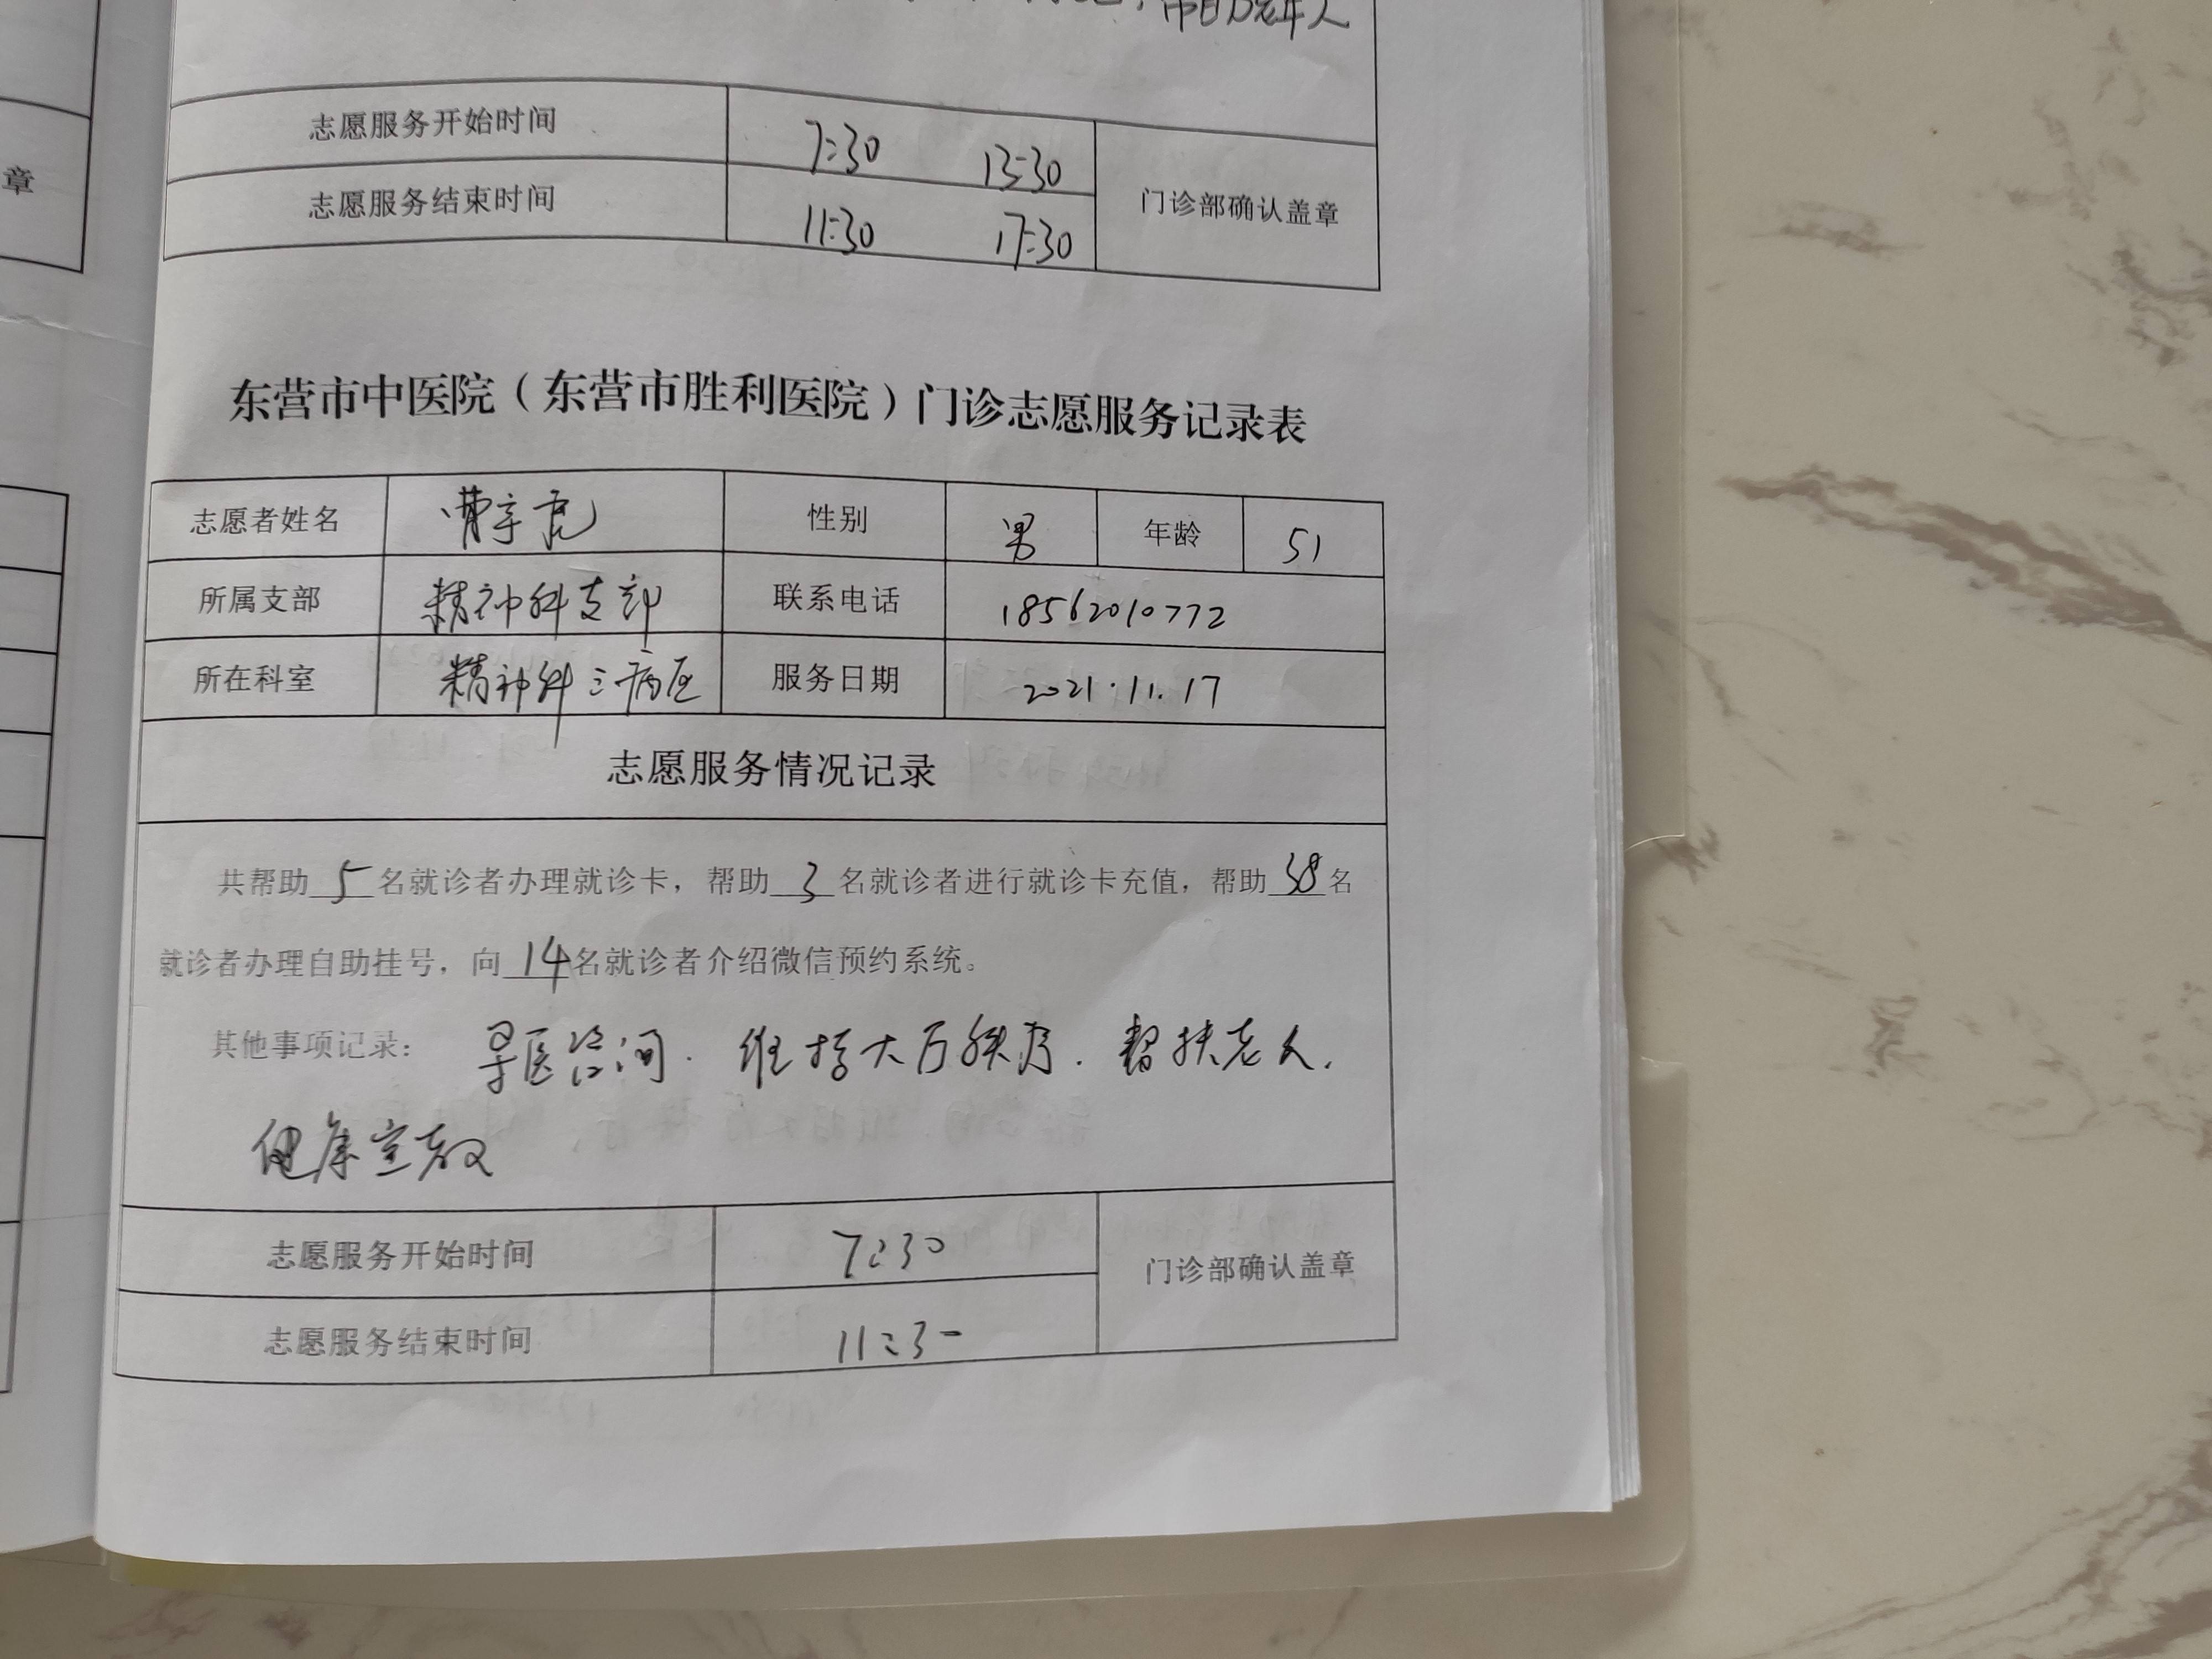 帮助老年人
志愿服务开始时间 7:30 13:30 门诊部确认盖章
志愿服务结束时间 11:30 17:30
章
东营市中医院（东营市胜利医院）门诊志愿服务记录表
志愿者姓名 曹字虎 性别 男 年龄 51
所属支部 精神科支部 联系电话 18562010772
所在科室 精神科三病区 服务日期 2021.11.17
志愿服务情况记录
共帮助 5 名就诊者办理就诊卡，帮助 3 名就诊者进行就诊卡充值，帮助 38 名
就诊者办理自助挂号，向 14 名就诊者介绍微信预约系统。
其他事项记录： 导医咨询. 维持大厅秩序. 帮扶老人.
健康宣教
志愿服务开始时间 7:30 门诊部确认盖章
志愿服务结束时间 11:30